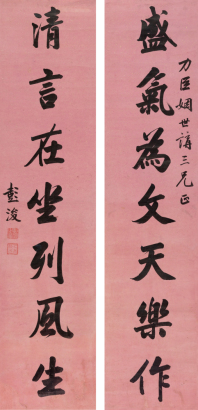 盛氣為文天樂作
力臣姻世講三兄正
清言在坐列風生
彭浚